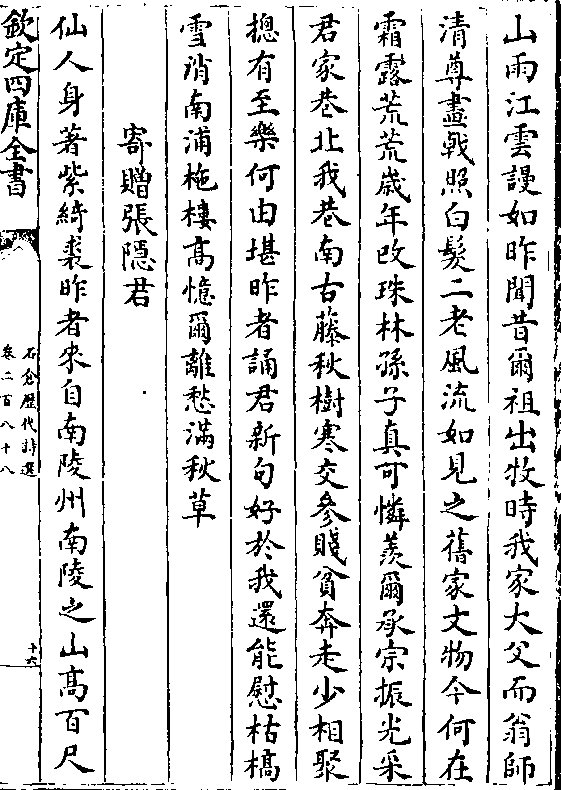 山雨江雲謾如昨聞昔爾祖出牧時我家大父而翁師
清尊畫戟照白髮二老風流如見之舊家文物今何在
霜露荒荒歲年改珠林孫子真可憐羨爾承宗振光采
君家巷北我巷南古藤秋樹寒交參賤貧奔走少相聚
摠有至樂何由堪昨者誦君新句好於我還能慰枯槁
雪消南浦柂樓高憶爾離愁滿秋草
寄贈張隱君
仙人身著紫綺裘昨者來自南陵州南陵之山高百尺
欽定四庫全書
石倉歷代詩選
卷二百八十八
十六